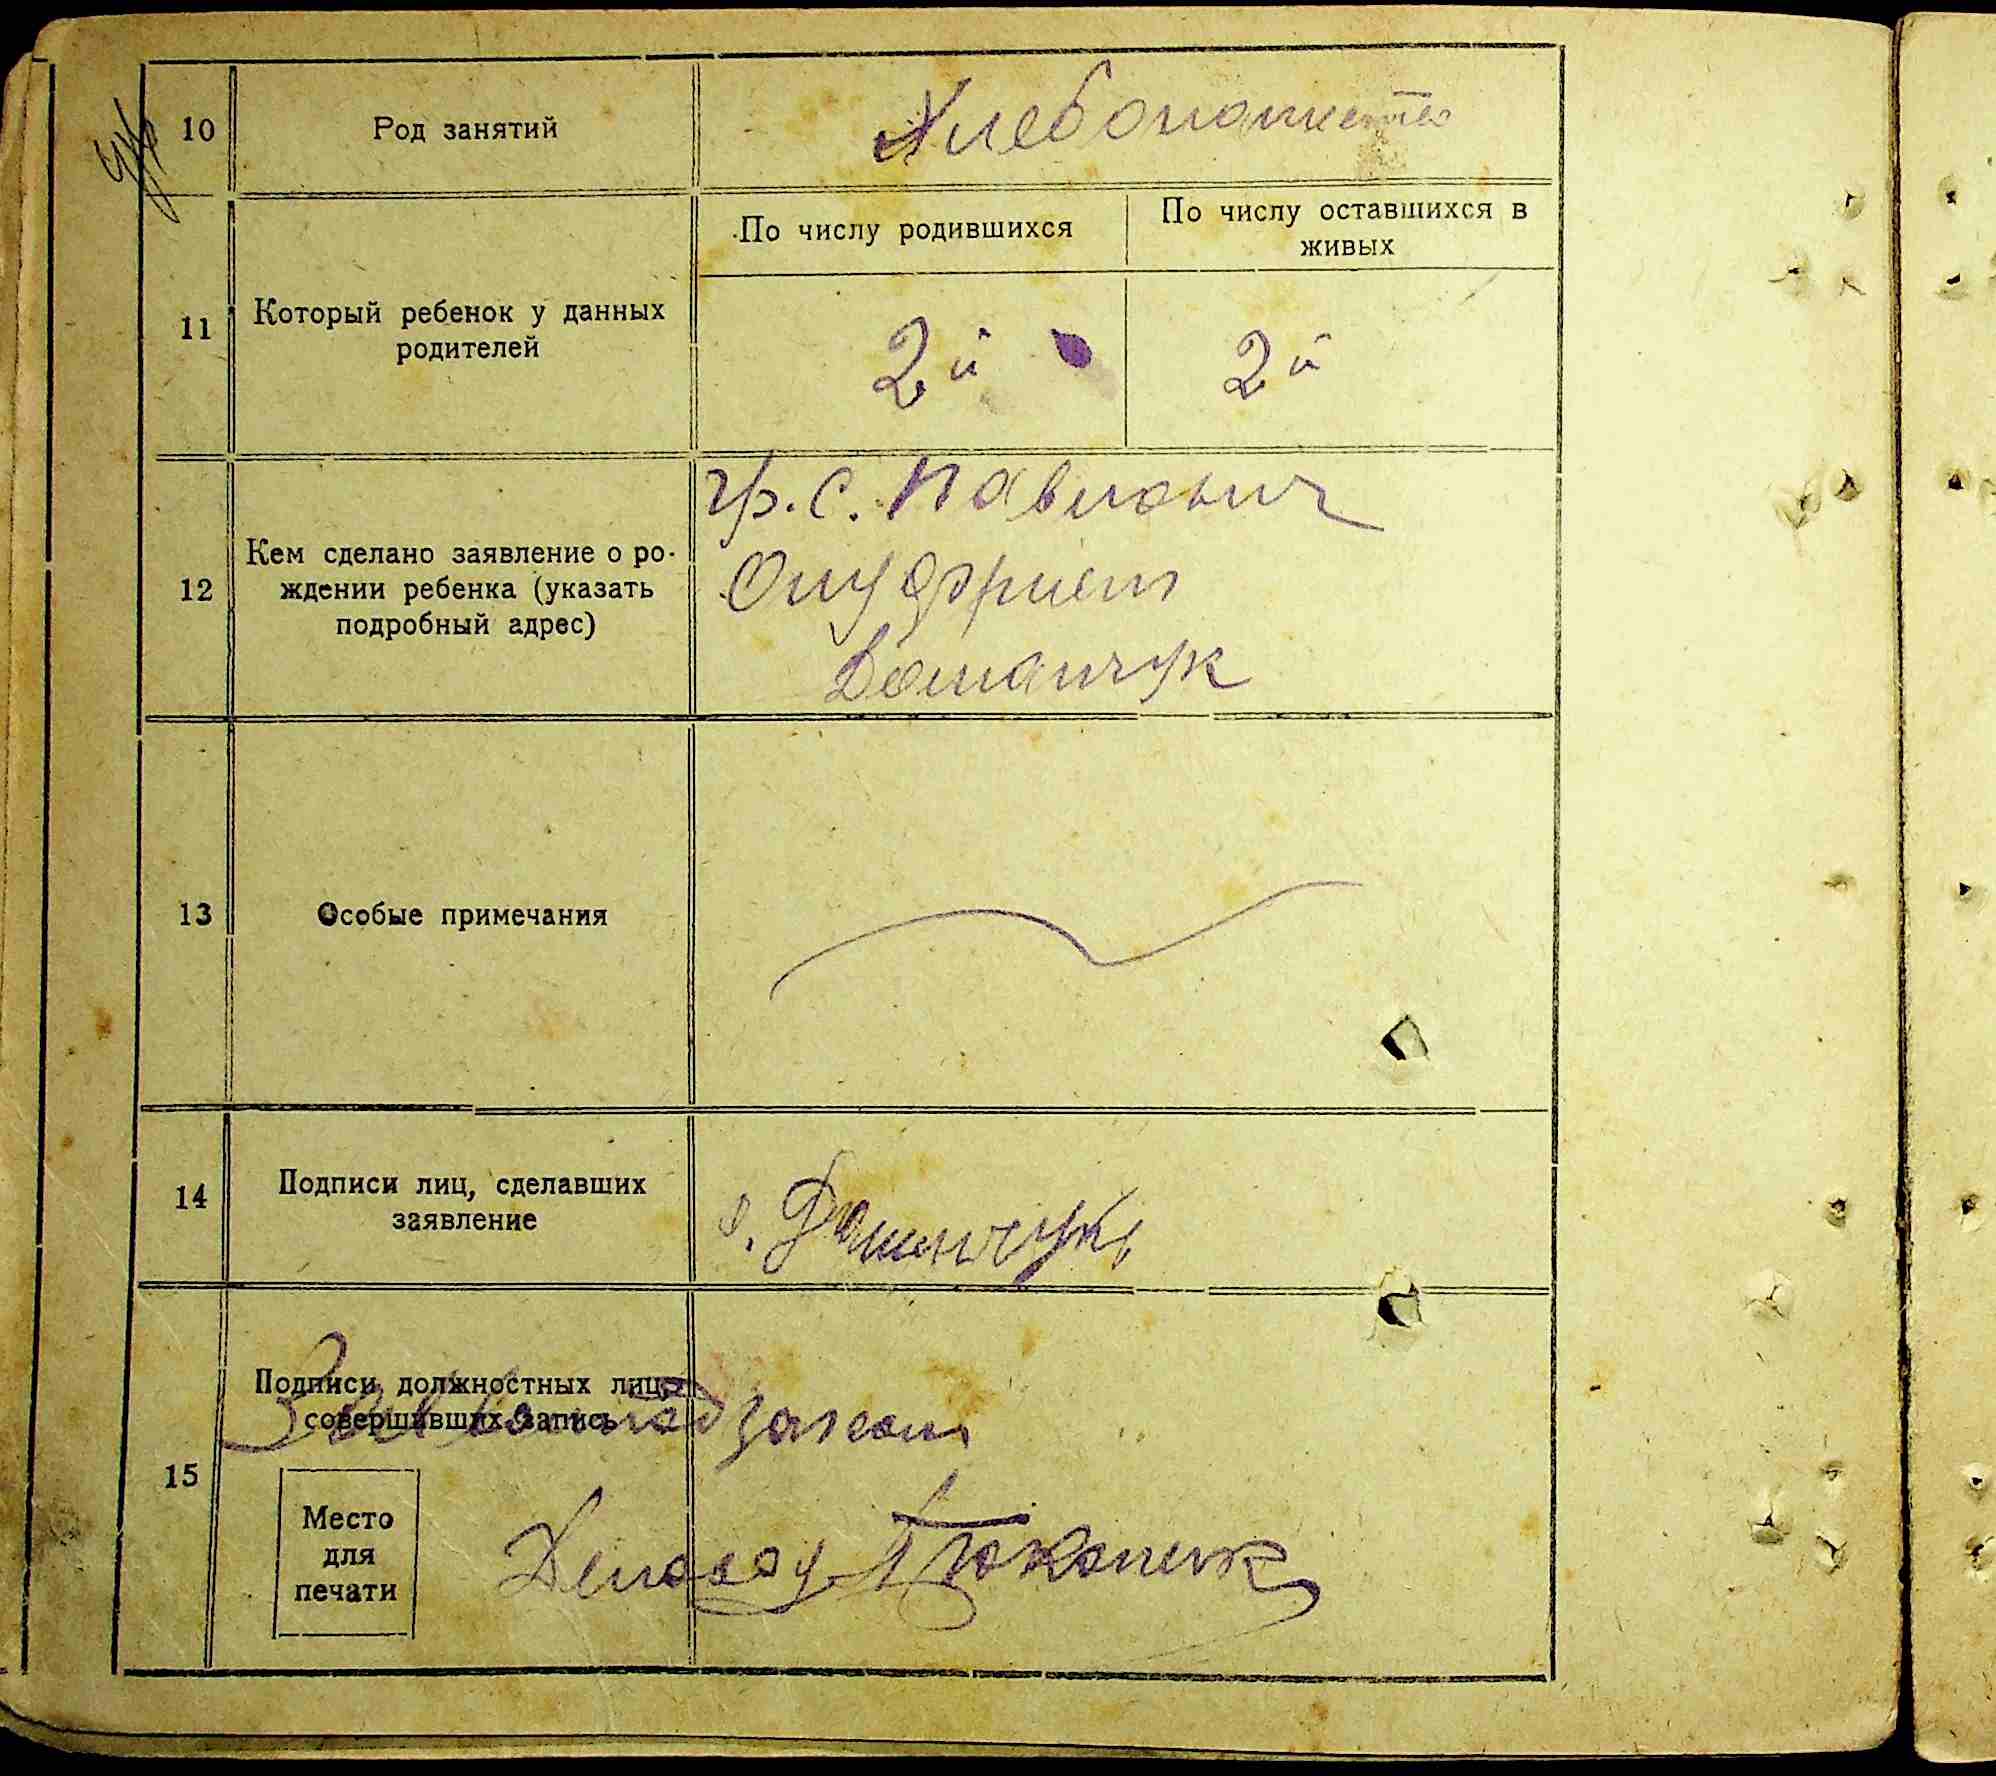 10
Род занятий
Хлебопашество
11
Который ребенок у данных
родителей
По числу родившихся
По числу оставшихся в
живых
2й
2й
12
Кем сделано заявление о ро-
ждении ребенка (указать
подробный адрес)
гр. с. Павлович
Онуфрием
Доманчук
13
Особые примечания
14
Подписи лиц, сделавших
заявление
о. Доманчукъ
15
Подписи должностных лиц,
совершивших запись
Место
для
печати